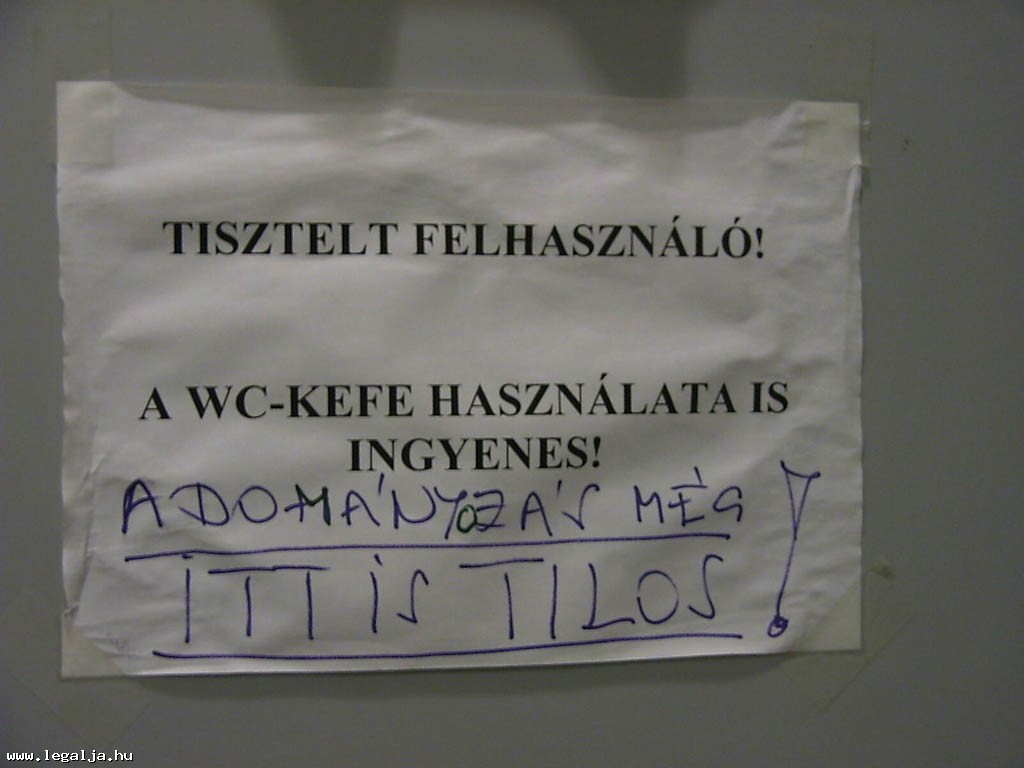 TISZTELT FELHASZNÁLÓ!
A WC-KEFE HASZNÁLATA IS
INGYENES!
ADOMÁNYOZÁS MÉG
ITT IS TILOS!
www.legalja.hu